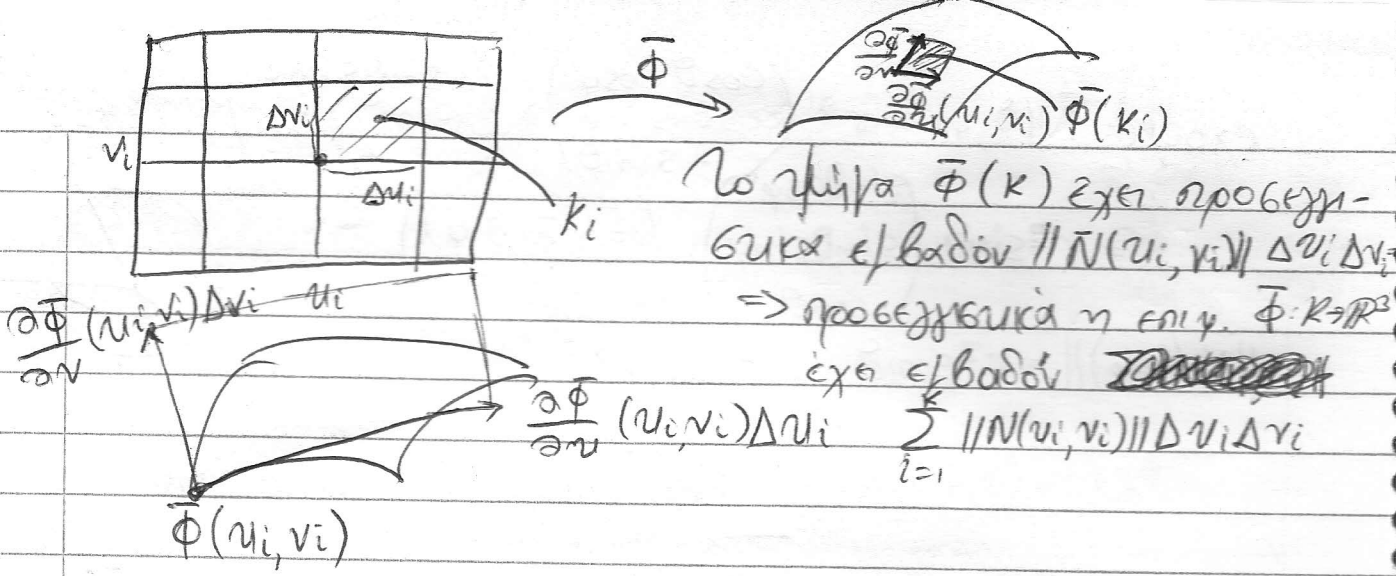 Φ̄
∂Φ̄/∂v
∂Φ̄/∂u (u_i, v_i) Φ̄(K_i)
Δv_i
v_i
Δu_i
K_i
u_i
Το τμήμα Φ̄(K) έχει προσεγγι-
στικά εμβαδόν ||N̄(u_i, v_i)|| Δu_i Δv_i
=> προσεγγιστικά η επιφ. Φ̄: K→ℝ³
έχει εμβαδόν
∑_{i=1}^{k} ||N(u_i, v_i)|| Δu_i Δv_i
∂Φ̄/∂v (u_i, v_i) Δv_i
∂Φ̄/∂u (u_i, v_i) Δu_i
Φ̄(u_i, v_i)